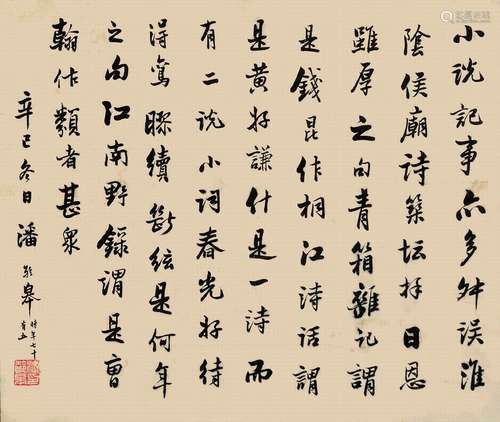 小说記事亦多舛误淮
陰侯廟詩築坛拜日恩
雖厚之句青箱雜记謂
是錢昆作桐江詩話謂
是黄好謙什是一詩而
有二说小词春光好待
得鸾膠續断絃是何年
之句江南野録謂是曺
翰作類者甚衆
辛巳冬日潘齡皋時年七十有五